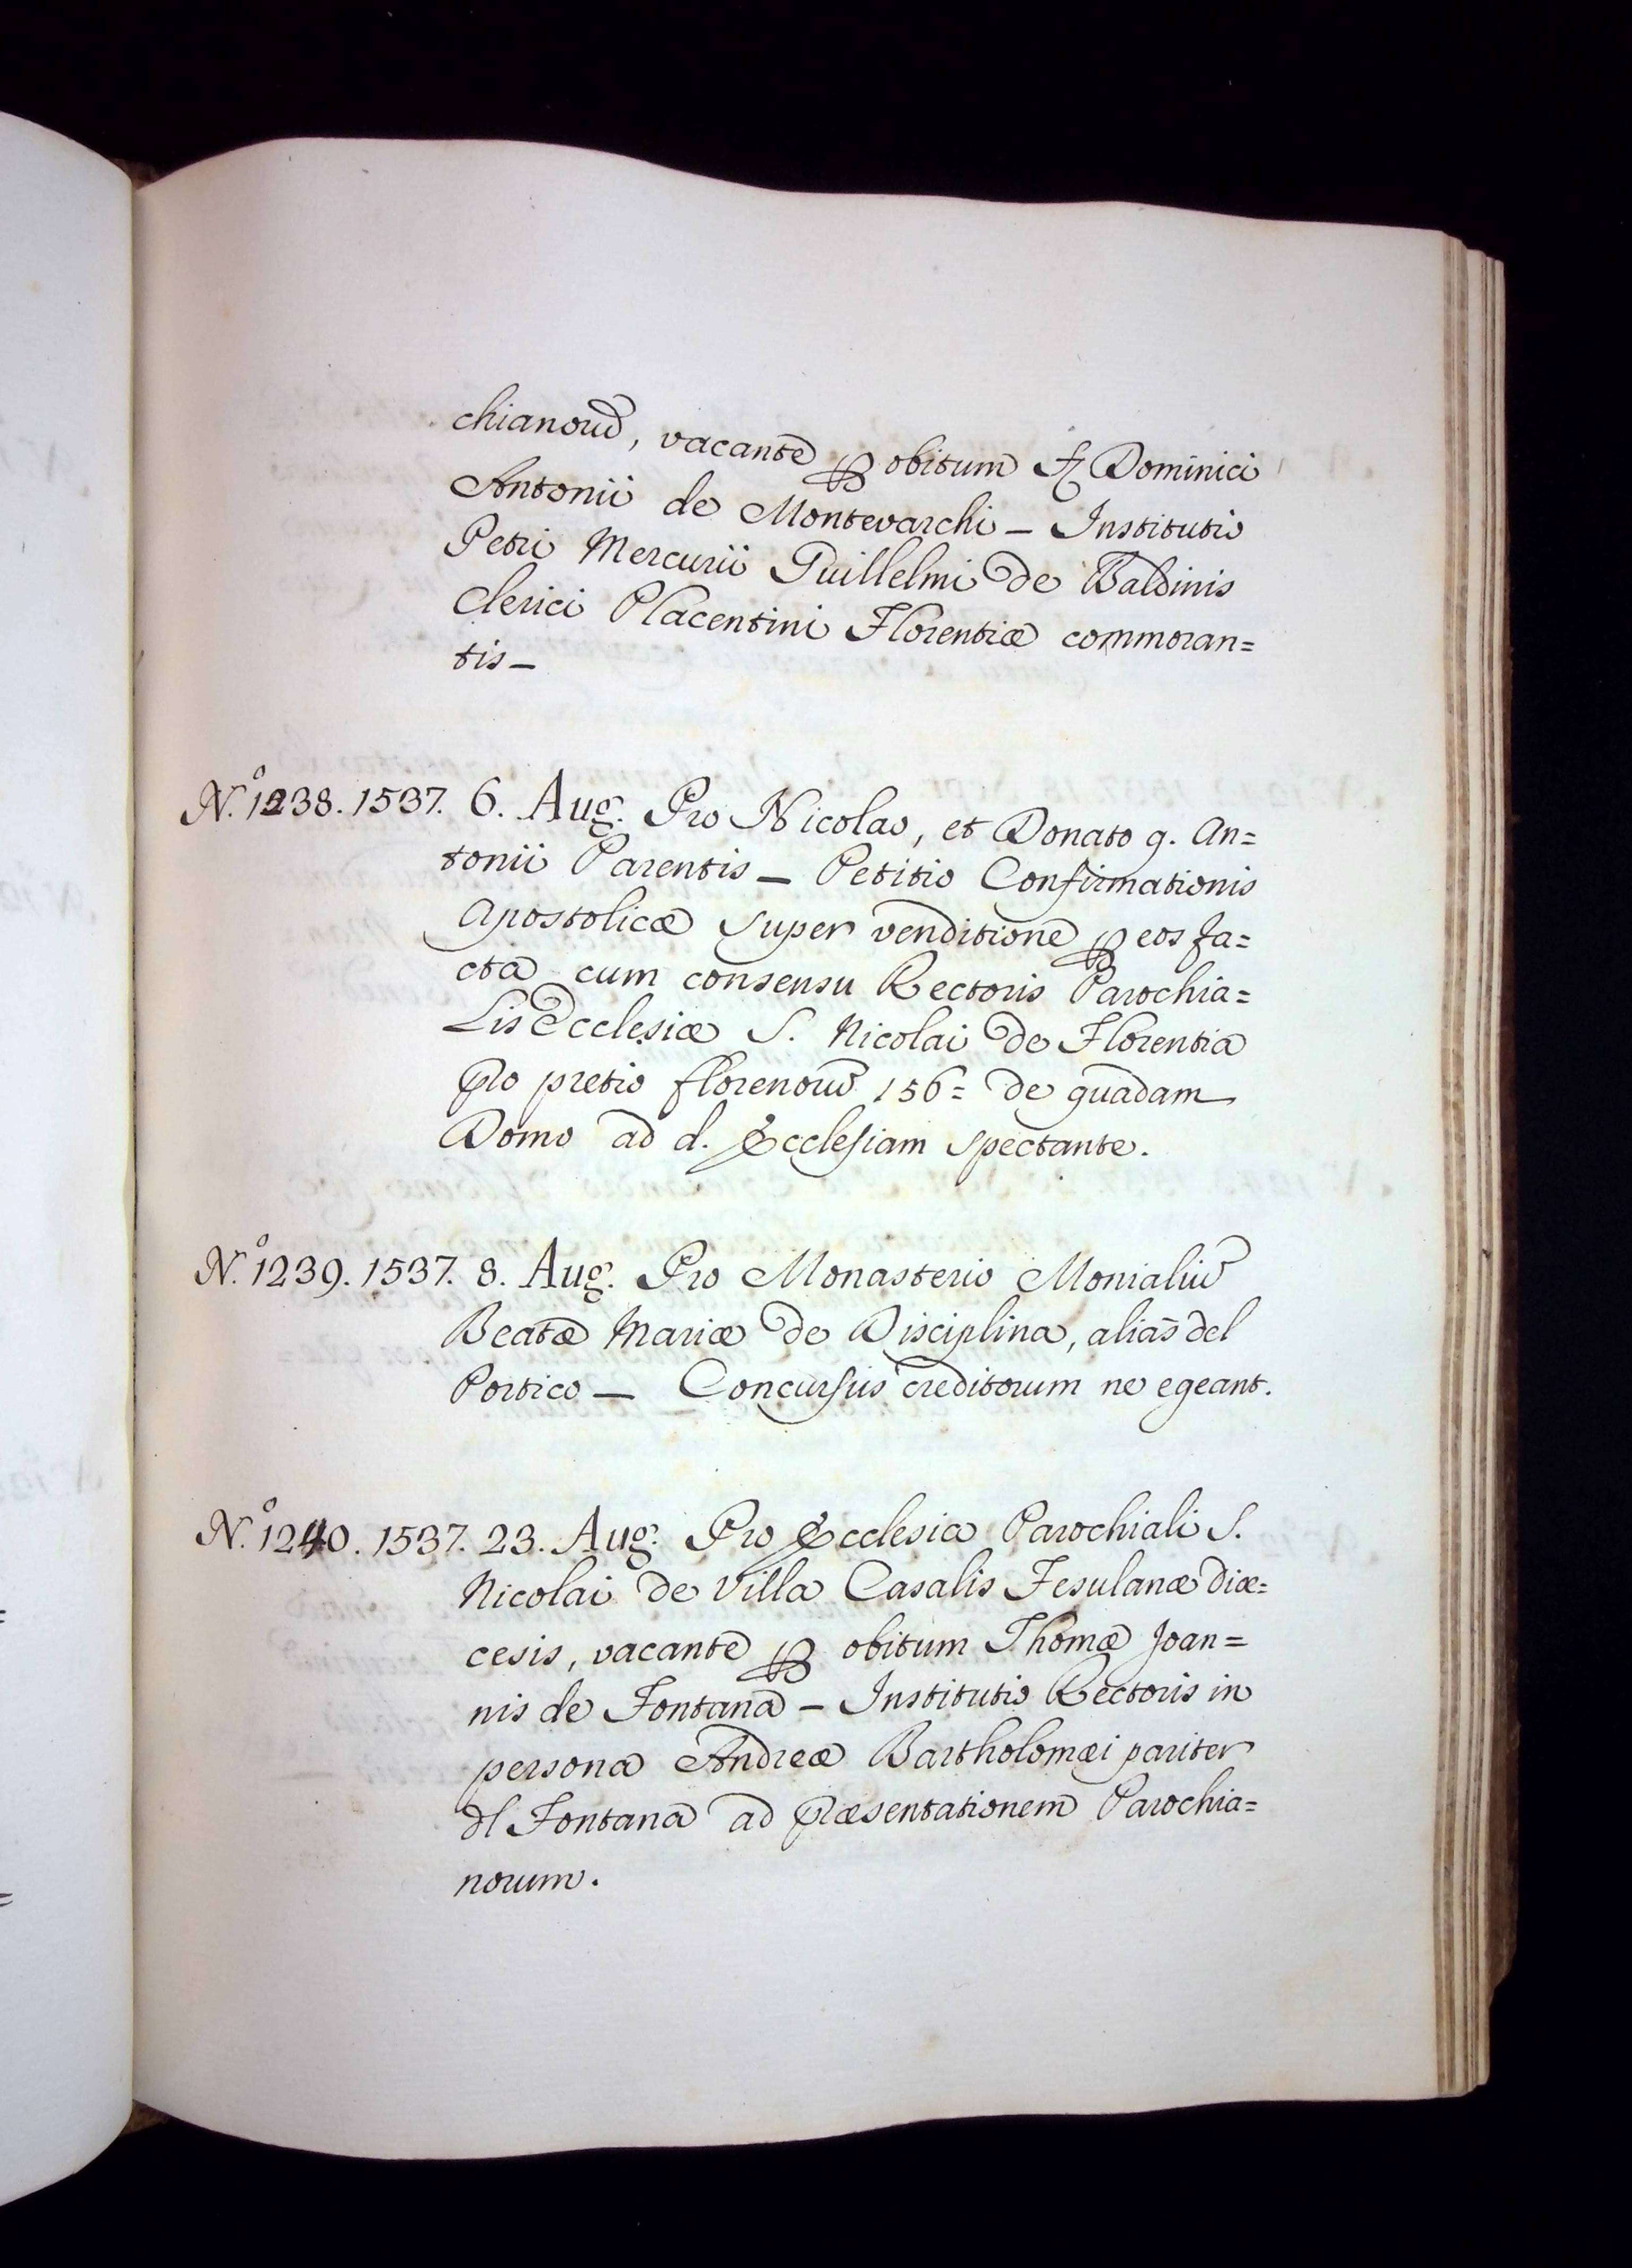 chianorũ, vacante ꝑ obitum Dominici
Antonii de Montevarchi – Institutio
Petri Mercurii Guillelmi de Baldinis
Clerici Placentini Florentiæ commoran=
tis –
N.º 1238. 1537. 6. Aug. Pro Nicolao, et Donato q. An=
tonii Parentis – Petitio Confirmationis
Apostolicæ super venditione ꝑ eos fa=
cta cum consensu Rectoris Parochia=
Lis Ecclesiæ S. Nicolai de Florentia
pro pretio florenorũ 156= de quadam
Domo ad d. Ecclesiam spectante.
N.º 1239. 1537. 8. Aug. Pro Monasterio Monialiũ
Beatæ Mariæ de Disciplina, alias del
Portico – Concursus creditorum ne egeant.
N.º 1240. 1537. 23. Aug. Pro Ecclesia Parochiali S.
Nicolai de Villa Casalis Fesulanæ diœ=
cesis, vacante ꝑ obitum Thomæ Joan=
nis de Fontana – Institutio Rectoris in
persona Andreæ Bartholomæi pariter
Fontana ad præsentationem Parochia=
norum.